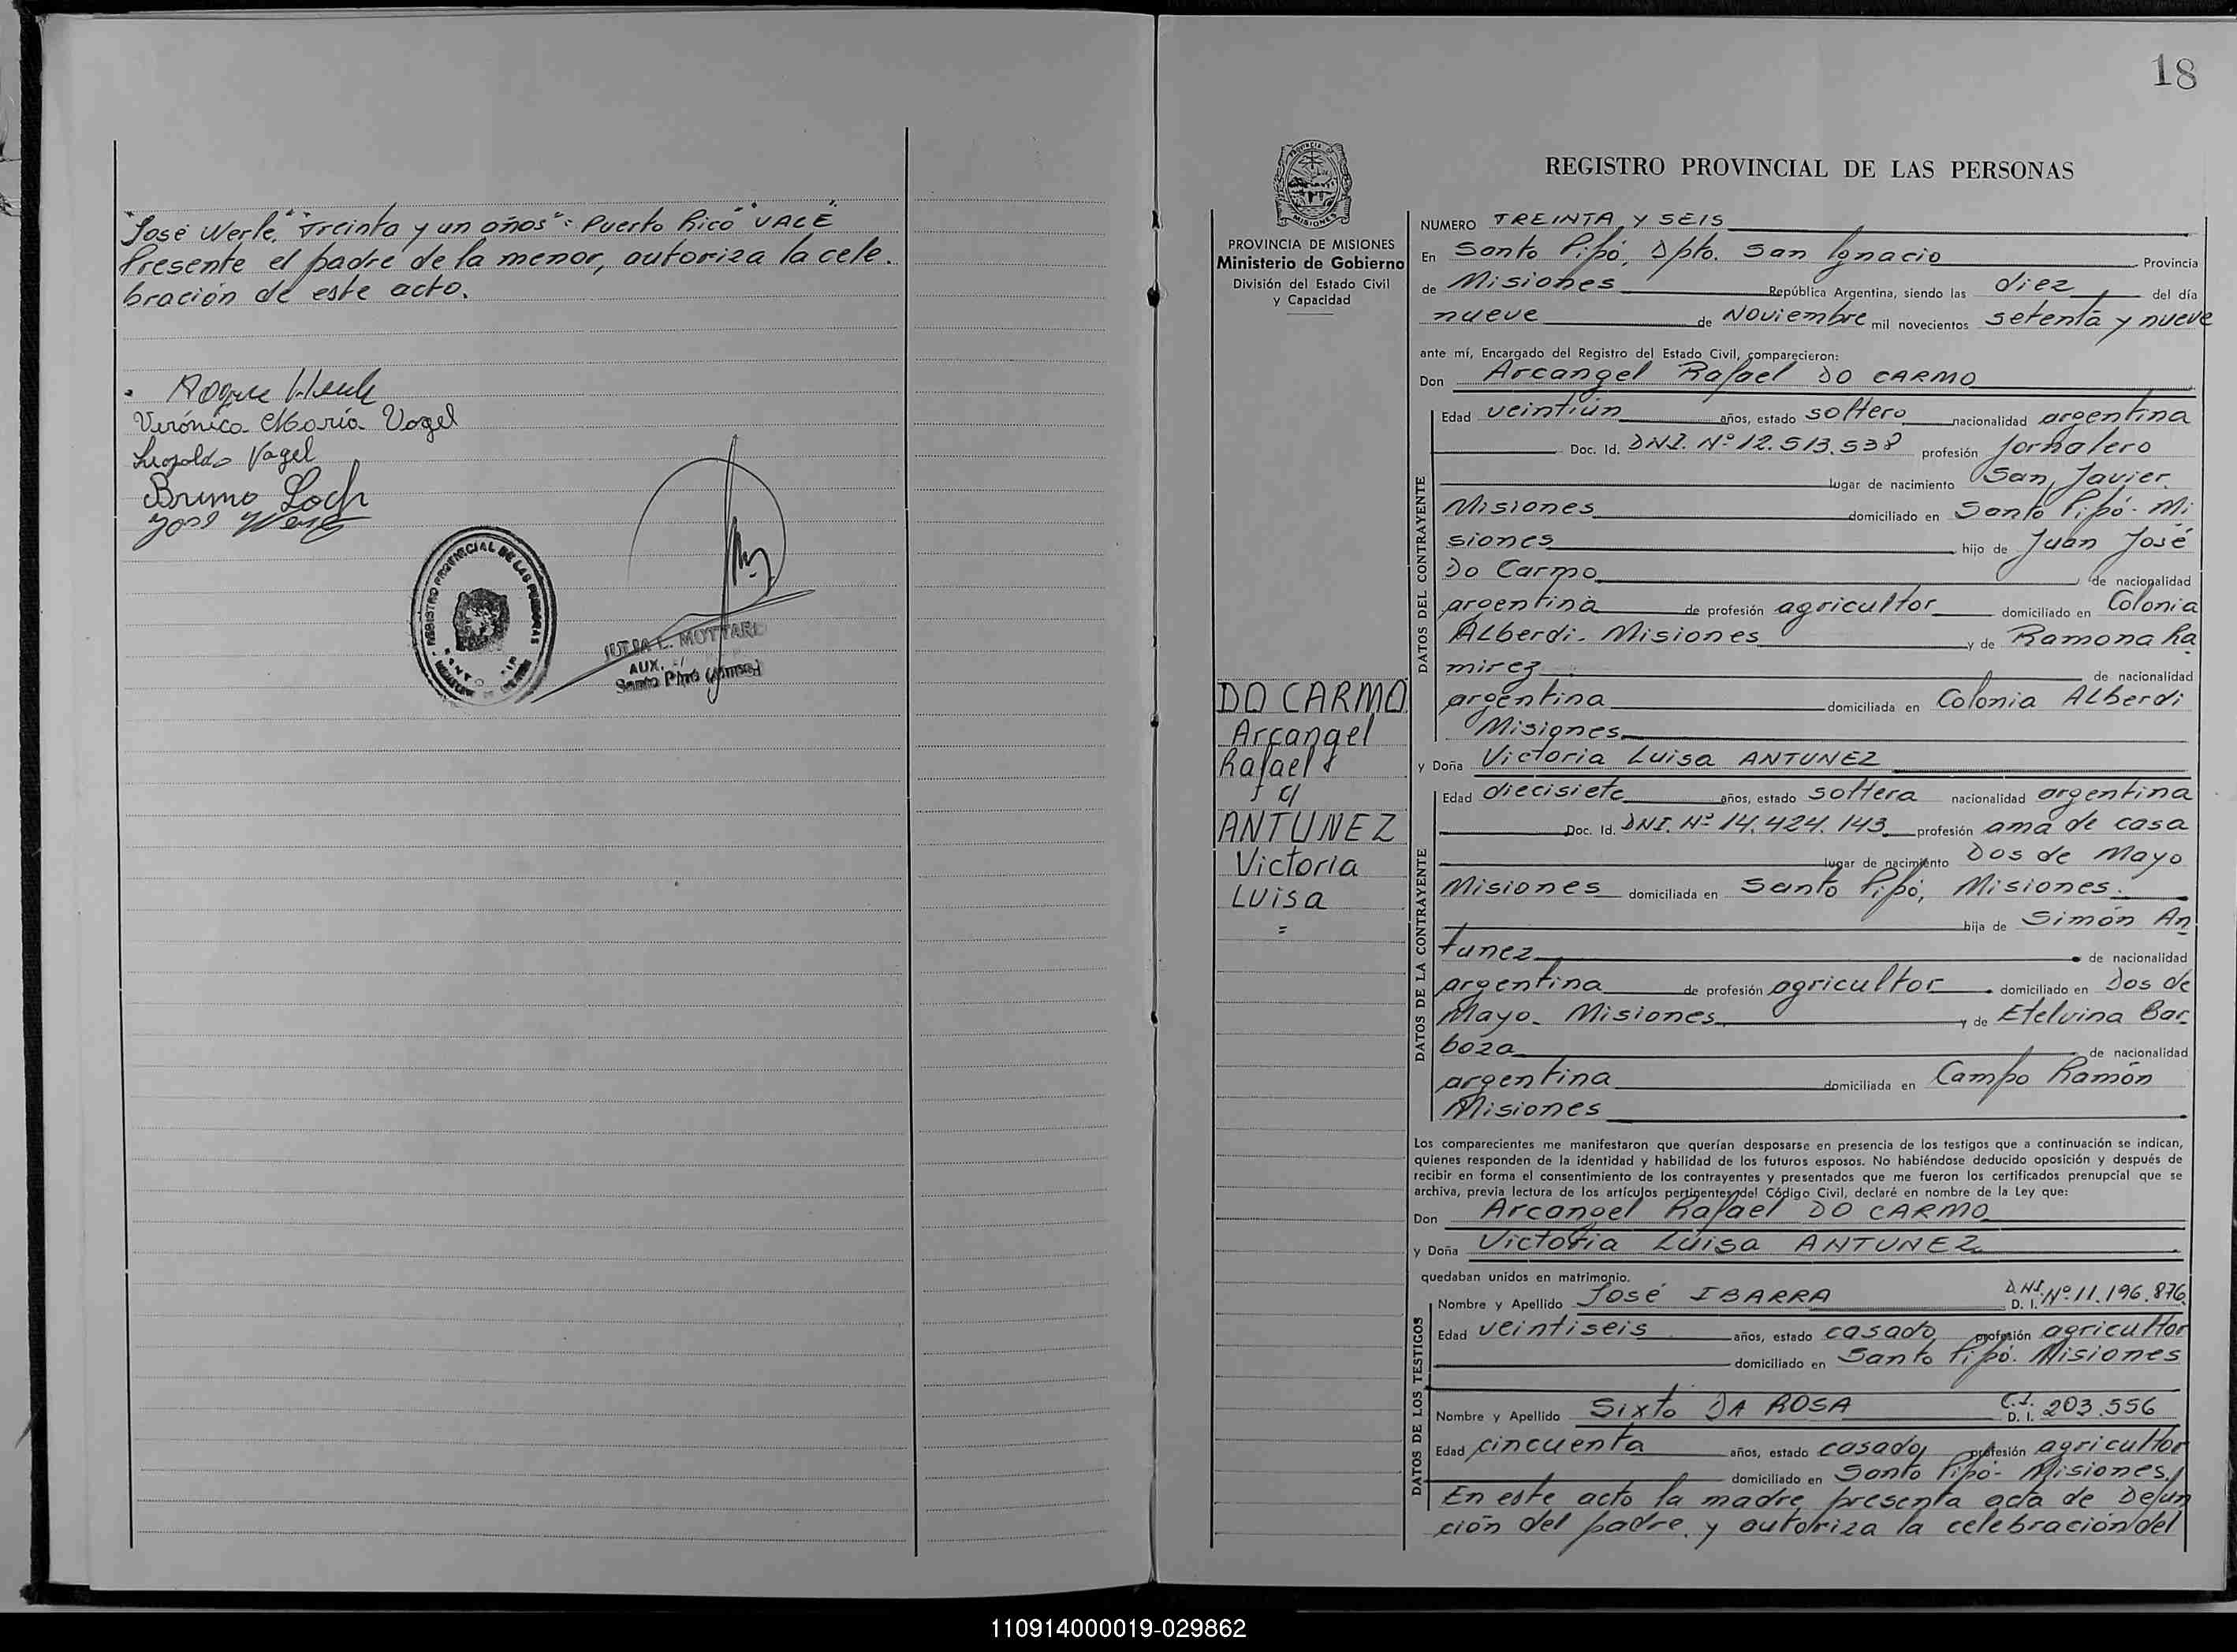 "José Werle," "Treinta y un años": Puerto Rico" "VALE"
Presente el padre de la menor, autoriza la cele-
bración de este acto.
Verónica María Vogel
Leopoldo Vogel
Bruno Loch
REGISTRO PROVINCIAL DE LAS PERSONAS
MOTTARI
AUX.
Santo Pipó (Mnes.)
18
MISIONES
PROVINCIA DE MISIONES
Ministerio de Gobierno
División del Estado Civil
y Capacidad
DO CARMO
Arcangel
Rafael
c/
ANTUNEZ
Victoria
Luisa
=
REGISTRO PROVINCIAL DE LAS PERSONAS
NUMERO TREINTA Y SEIS
En Santo Pipó, Dpto. San Ignacio Provincia
de Misiones República Argentina, siendo las diez del día
nueve de Noviembre mil novecientos setenta y nueve
ante mí, Encargado del Registro del Estado Civil, comparecieron:
Don Arcangel Rafael DO CARMO
DATOS DEL CONTRAYENTE
Edad veintiún años, estado soltero nacionalidad argentina
Doc. Id. DNI. Nº 12.513.538 profesión Jornalero
lugar de nacimiento San Javier
Misiones domiciliado en Santo Pipó - Mi
siones hijo de Juan José
Do Carmo de nacionalidad
argentina de profesión agricultor domiciliado en Colonia
Alberdi - Misiones y de Ramona Ra
mirez de nacionalidad
argentina domiciliada en Colonia Alberdi
Misiones
y Doña Victoria Luisa ANTUNEZ
DATOS DE LA CONTRAYENTE
Edad diecisiete años, estado soltera nacionalidad argentina
Doc. Id. DNI. Nº 14.424.143 profesión ama de casa
lugar de nacimiento Dos de Mayo
Misiones domiciliada en Santo Pipó, Misiones.
hija de Simón An
tunez de nacionalidad
argentina de profesión agricultor domiciliado en Dos de
Mayo - Misiones y de Etelvina Bar
boza de nacionalidad
argentina domiciliada en Campo Ramón
Misiones
Los comparecientes me manifestaron que querían desposarse en presencia de los testigos que a continuación se indican,
quienes responden de la identidad y habilidad de los futuros esposos. No habiéndose deducido oposición y después de
recibir en forma el consentimiento de los contrayentes y presentados que me fueron los certificados prenupcial que se
archiva, previa lectura de los artículos pertinentes del Código Civil, declaré en nombre de la Ley que:
Don Arcangel Rafael DO CARMO
y Doña Victoria Luisa ANTUNEZ
quedaban unidos en matrimonio.
DATOS DE LOS TESTIGOS
Nombre y Apellido José IBARRA D. I. DNI. Nº 11.196.876
Edad veintiseis años, estado casado profesión agricultor
domiciliado en Santo Pipó. Misiones
Nombre y Apellido Sixto DA ROSA D. I. C.I. 203.556
Edad cincuenta años, estado casado profesión agricultor
domiciliado en Santo Pipó - Misiones.
En este acto la madre presenta acta de Defun
ción del padre y autoriza la celebración del
110914000019-029862